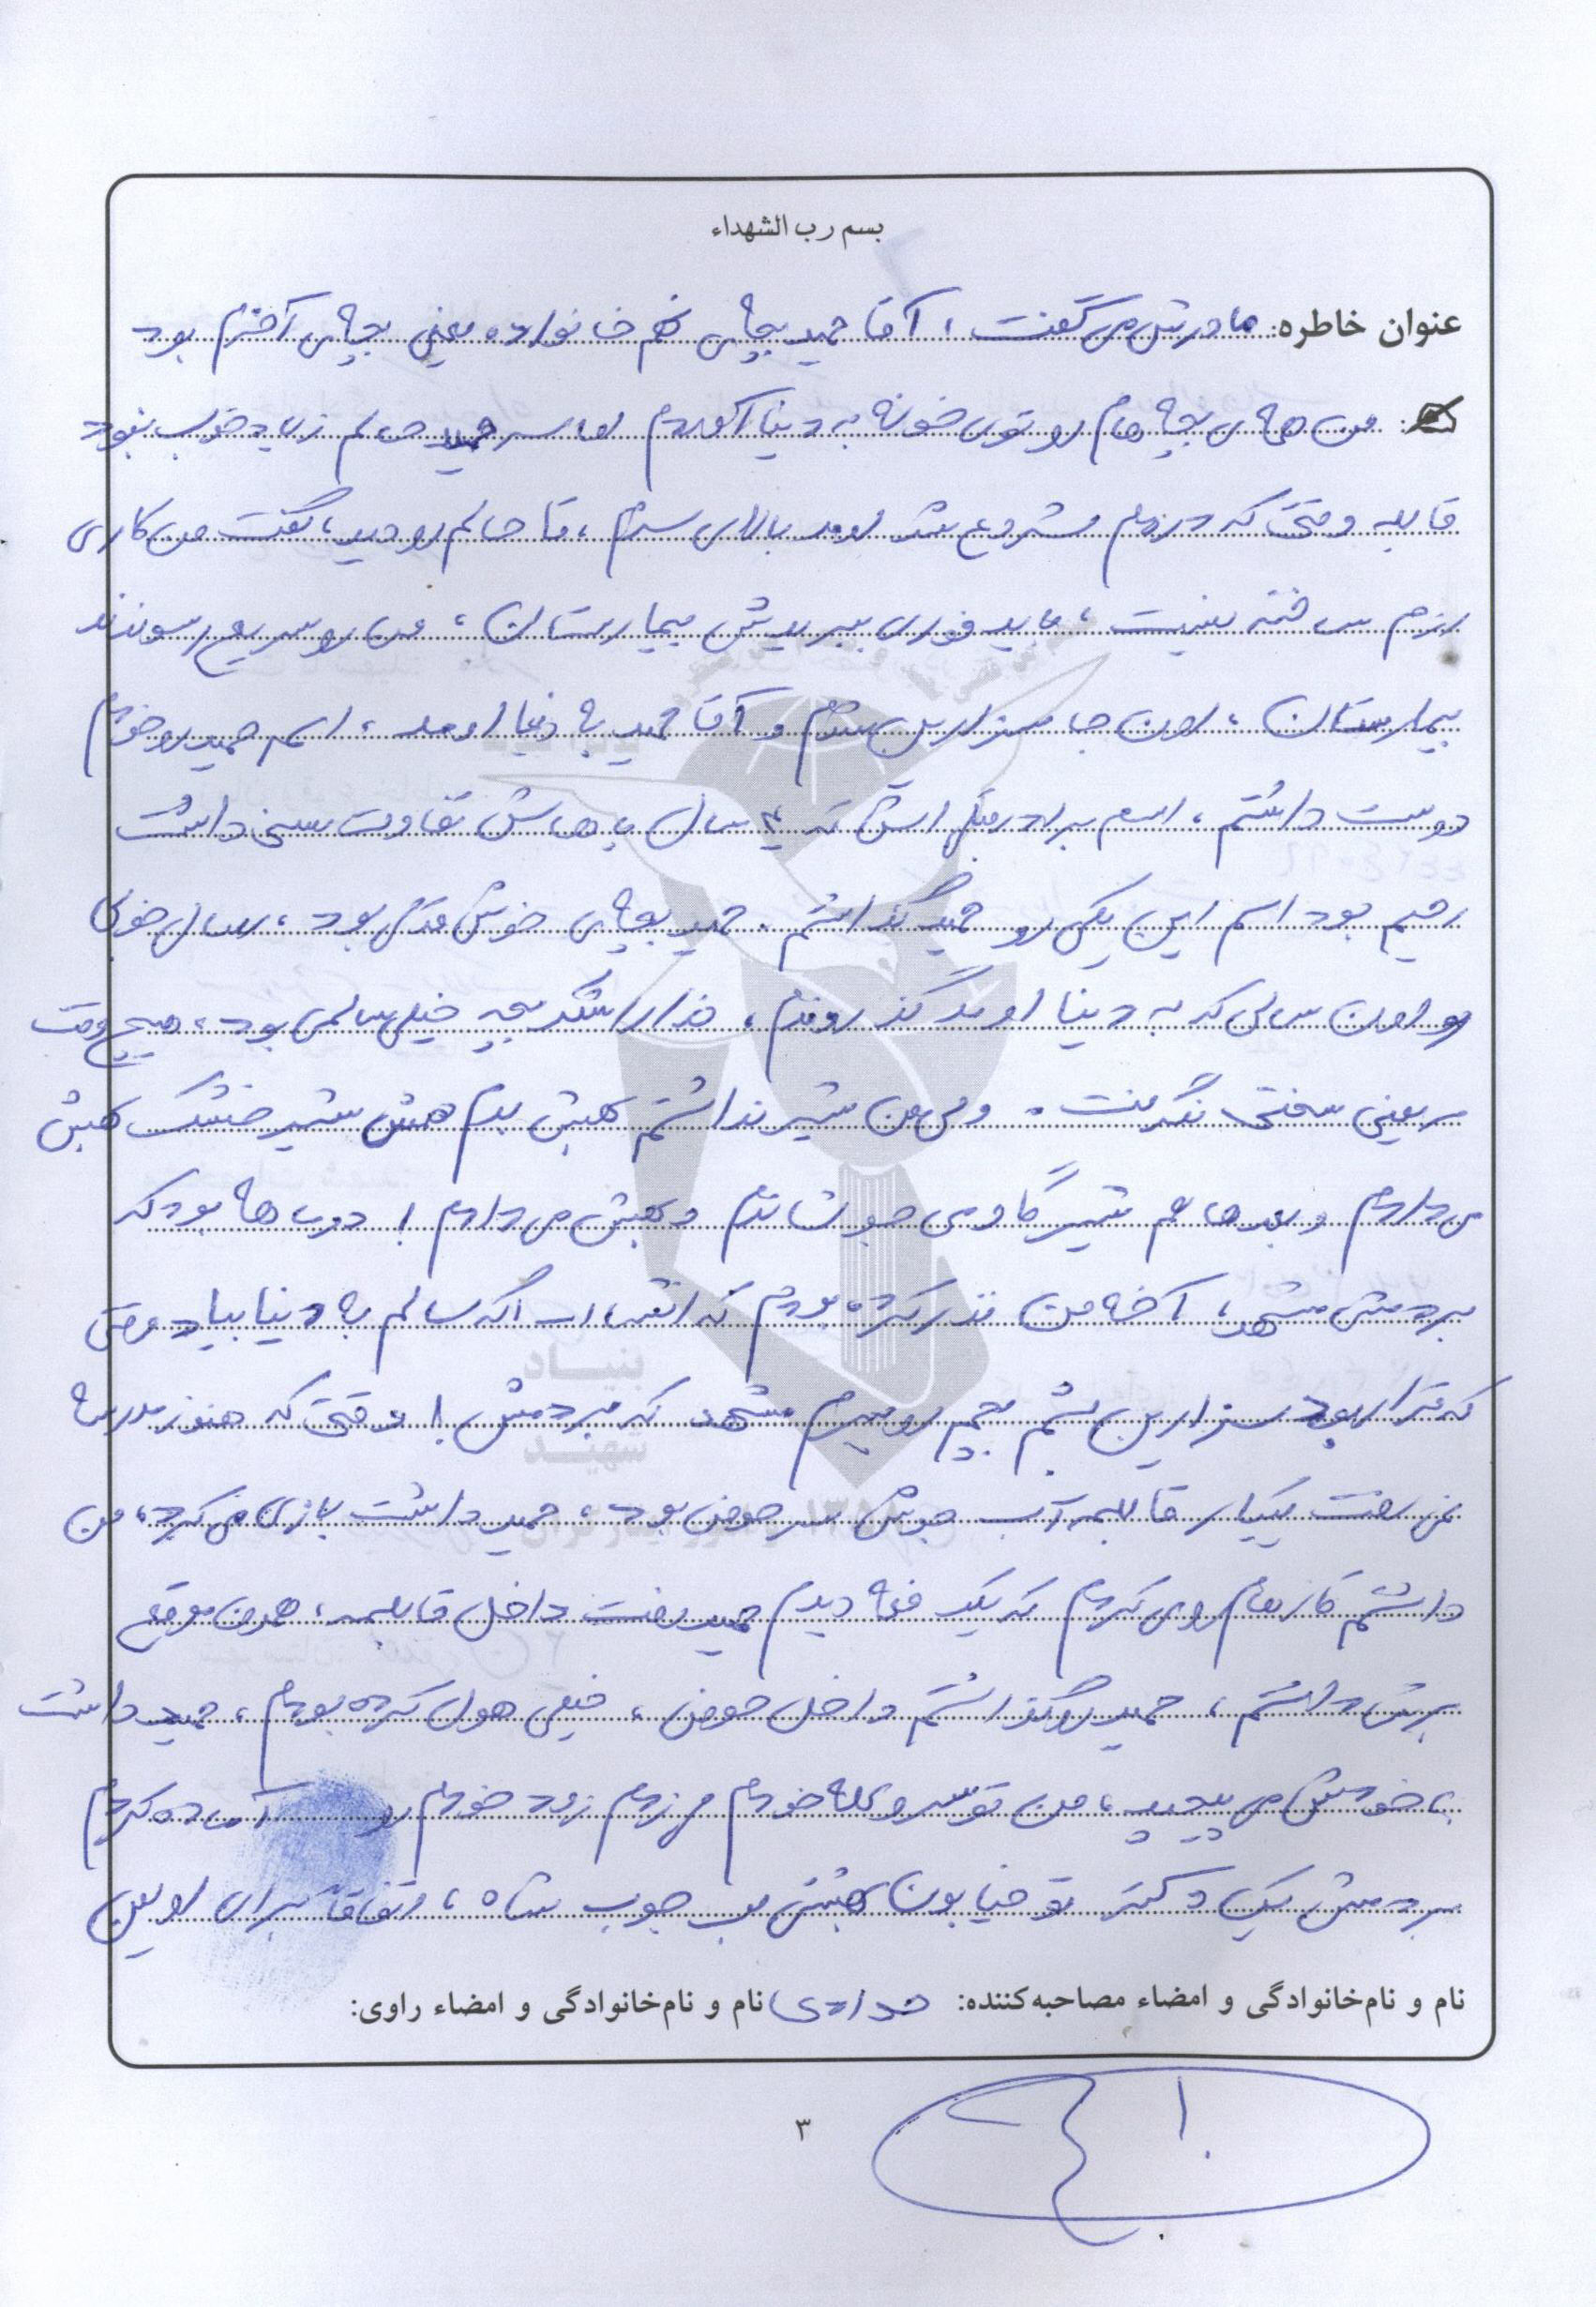 بسم رب الشهداء
عنوان خاطره: مادرش می گفت، آقا حمید بچه ی نهم خانواده یعنی بچه ی آخرم بود
من همه ی بچه هام رو توی خونه به دنیا آوردم اما سر حمید حالم زیاد خوب نبود
قابله وقتی که دردم شروع شد اومد بالای سرم، تا حالم رو دید، گفت من کاری
ازم ساخته نیست، باید فوری ببریدش بیمارستان، من رو سریع رسوندند
بیمارستان، اون جا سزارین شدم و آقا حمید به دنیا اومد، اسم حمید رو خودم
دوست داشتم، اسم برادر قبلی اش که ۴ سال باهاش تفاوت سنی داشت
رحیم بود اسم این یکی رو حمید گذاشتم. حمید بچه ی خوش قدمی بود، سال خوبی
رو اون سالی که به دنیا اومد گذروندم، خدا را شکر بچه خیلی سالمی بود، هیچ وقت
مریضی سختی نگرفت. ولی من شیر نداشتم بهش بدم همش شیر خشک بهش
می دادم و بعدها هم شیر گاو می جوشاندم و بهش می دادم! دوساله بود که
بردمش مشهد، آخه من نذر کرده بودم که انشاءالله اگه سالم به دنیا بیاد وقتی
که قرار بود سزارین بشم بچم رو میبرم مشهد که بردمش! وقتی که هنوز مدرسه
نمی رفت یکبار قابلمه آب جوش سر حوض بود، حمید داشت بازی می کرد، من
داشتم کارهام رو می کردم که یکدفعه دیدم حمید رفت داخل قابلمه، همون موقع
برش داشتم، حمید رو گذاشتم داخل حوض، خیلی هول کرده بودم، حمید داشت
به خودش می پیچید، من تو سر و کله خودم می زدم زود خودم رو آماده کردم
بردمش یک دکتر تو خیابون بهش چوب شاه، اتفاقاً برای اولین
نام و نام‌خانوادگی و امضاء مصاحبه‌کننده: نام و نام‌خانوادگی و امضاء راوی:
۳
بنیاد
شهید